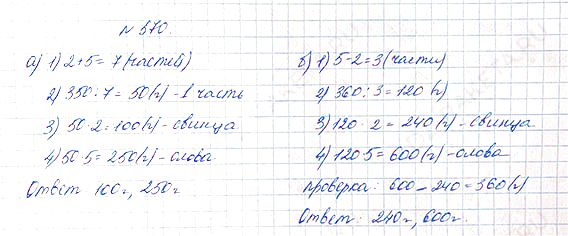 № 570.
а) 1) 2+5=7 (частей)
2) 350:7=50(г)-1 часть
3) 50·2=100(г)-свинца
4) 50·5=250(г)-олова
Ответ 100г, 250г
б) 1) 5-2=3(части)
2) 360:3=120(г)
3) 120·2=240(г)-свинца
4) 120·5=600(г)-олова
проверка: 600-240=360(г)
Ответ: 240г, 600г.